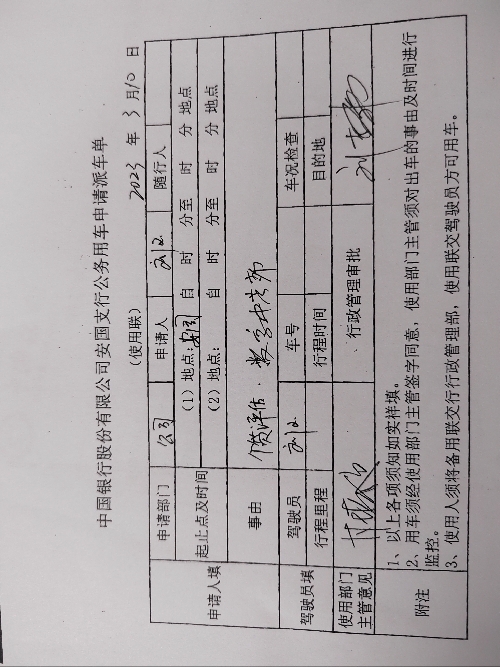 中国银行股份有限公司安国支行公务用车申请派车单
(使用联) 2023 年 3 月10 日
申请人填 申请部门 公司 申请人 随行人
起止点及时间 (1) 地点:安国 自 时 分至 时 分 地点
(2) 地点: 自 时 分至 时 分 地点
事由
驾驶员填 驾驶员 车号 车况检查
行程里程 行程时间 目的地
使用部门主管意见 行政管理审批
附注 1、以上各项须知如实祥填。
2、用车须经使用部门主管签字同意,使用部门主管须对出车的事由及时间进行
监控。
3、使用人须将备用联交行政管理部,使用联交驾驶员方可用车。